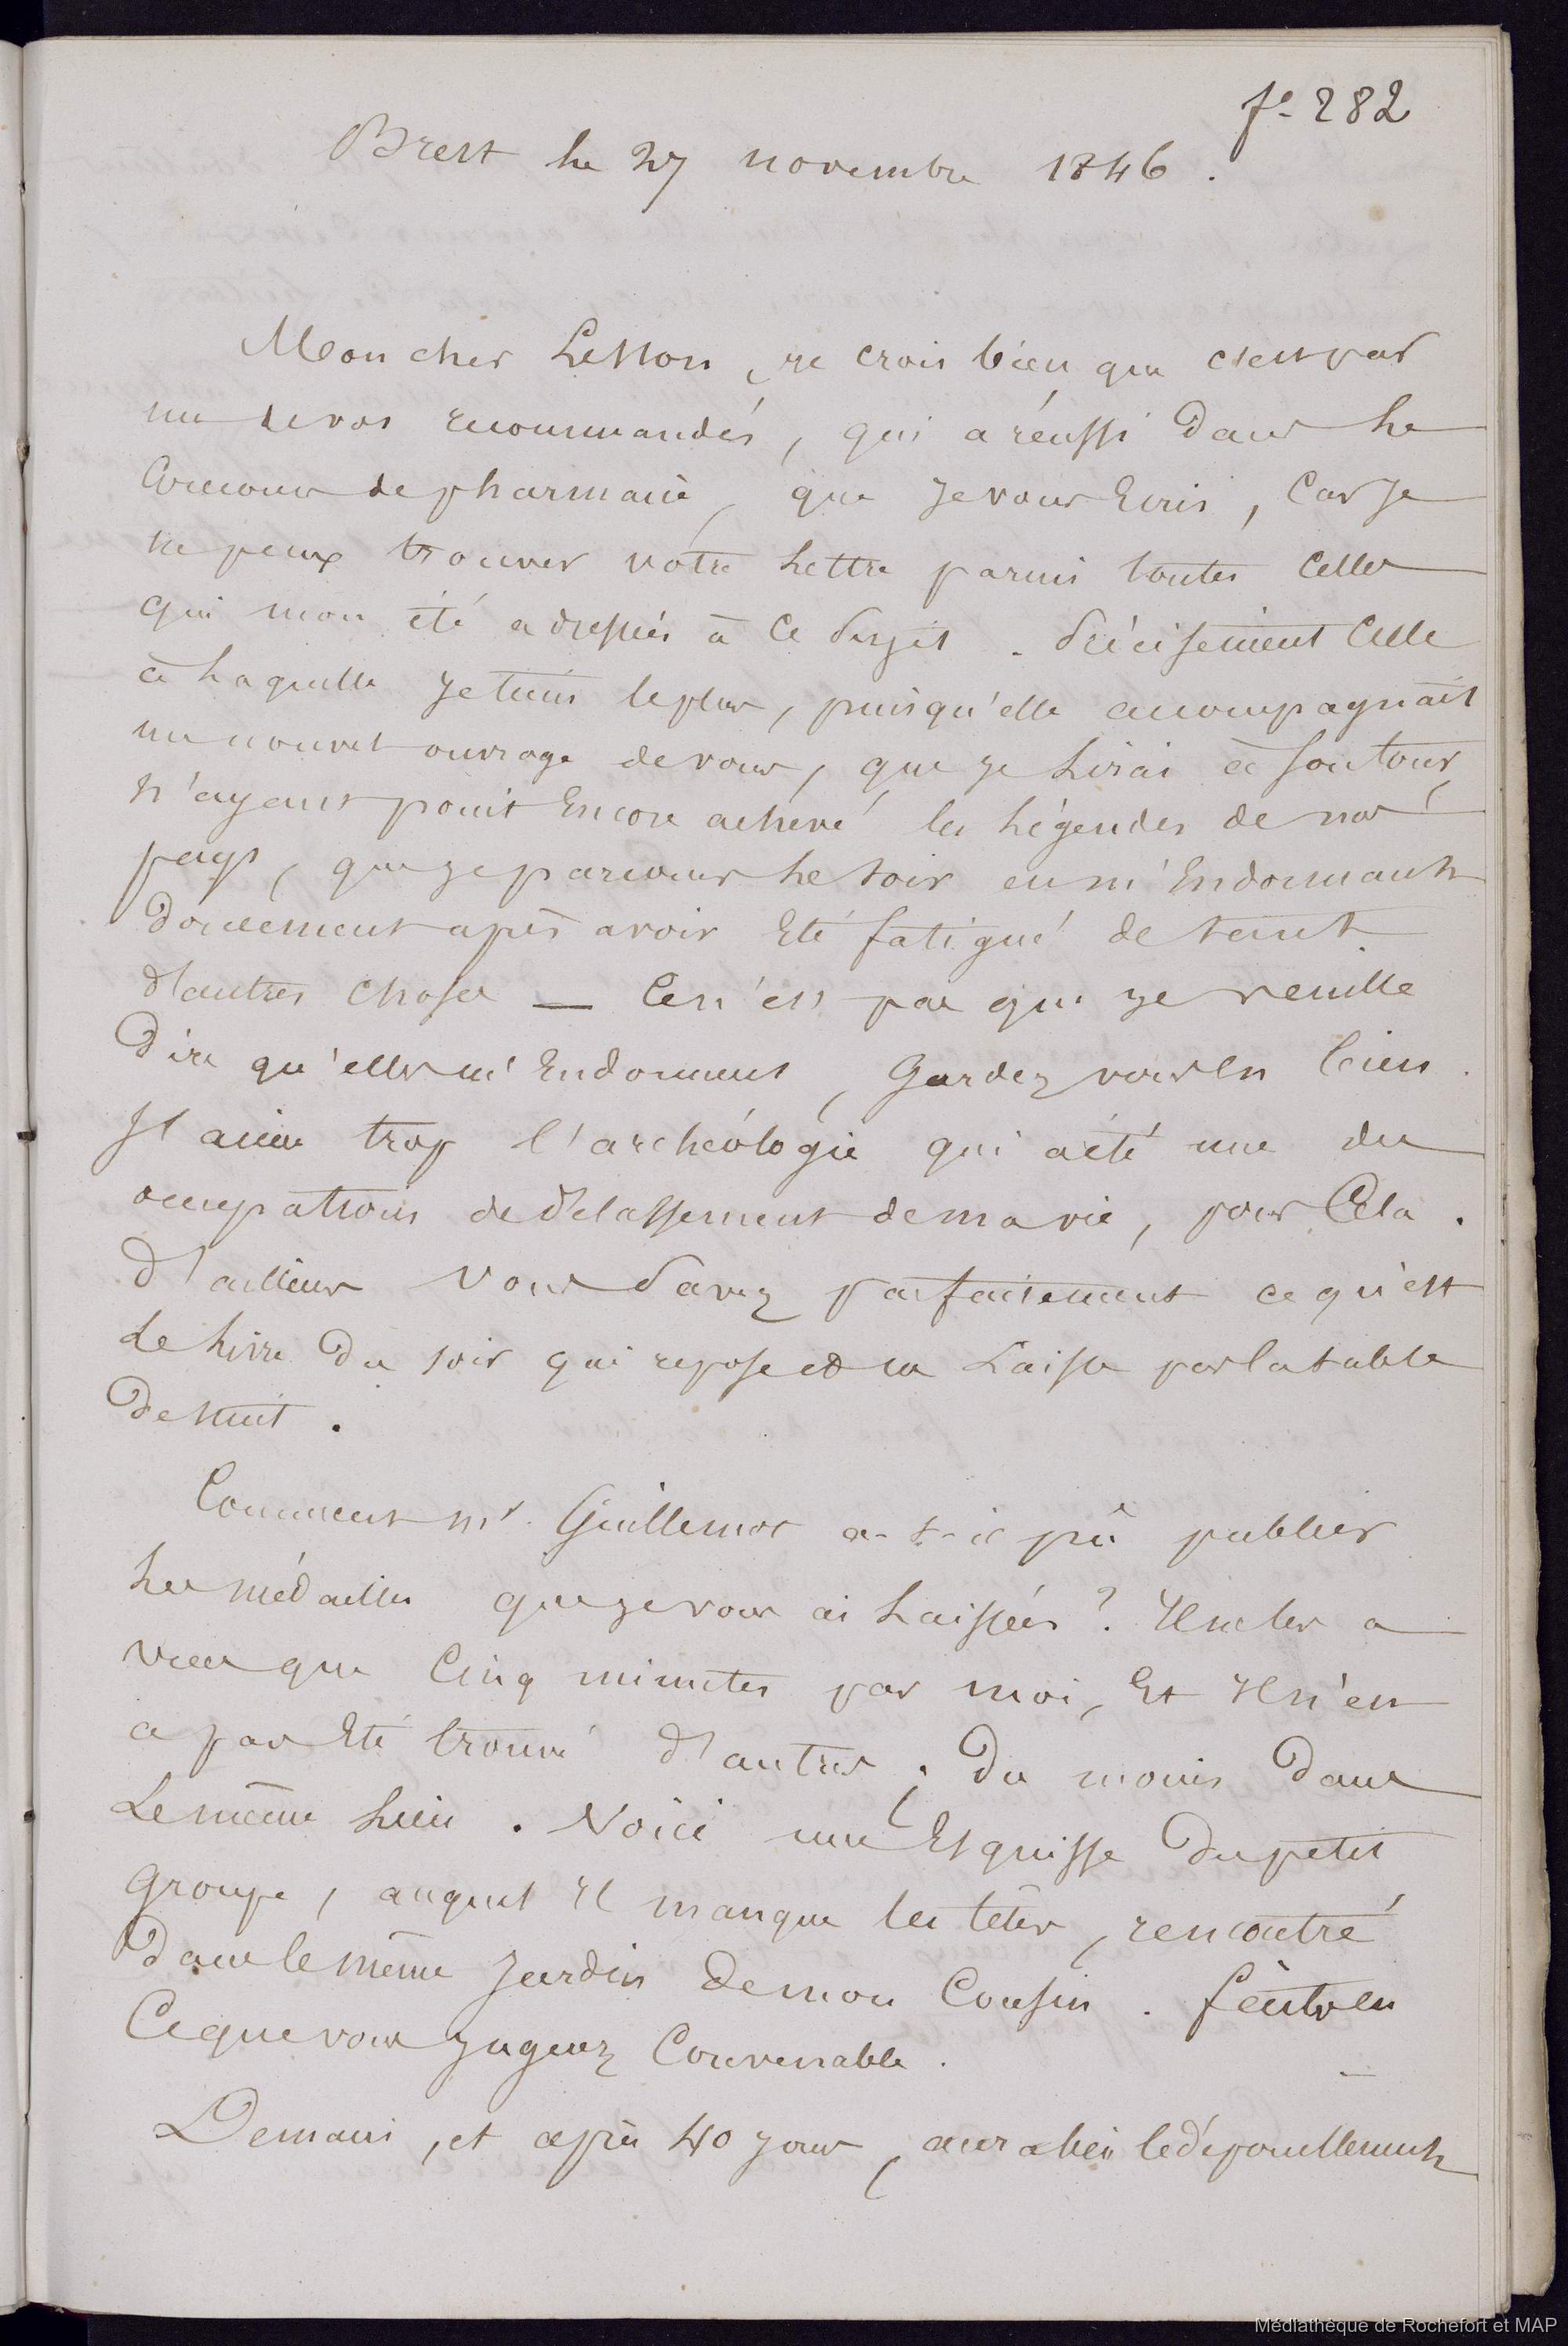 fo 282
Brest le 27 novembre 1846.
Mon cher Lesson, je crois bien que c'est par
un de vos recommandés, qui a réussi dans le
Concours de pharmacie, que je vous Ecris, Car je
ne peux trouver votre lettre parmi toutes Celles
qui m'on été adressées à Ce sujet. Précisement Celle
à laquelle je tiens le plus, puisqu'elle accompagnait
un nouvel ouvrage de vous, que je lirai à son tour,
n'ayant point Encore achevé les légendes de nos
pays, que je parcours le soir en m'Endormant
Doucement après avoir Eté fatigué de tant
d'autres Choses — Ce n'est pas que je veuille
Dire qu'elles m'Endorment, Gardez vous En bien.
J'aime trop l'archéologie qui a été une des
occupations de délassement de ma vie, pour Cela.
D'ailleurs Vous Savez parfaitement ce qu'est
Le livre Du soir qui repose et se Laisse sur la table
De nuit.
Comment Mr. Guillemot a-t-il pû publier
les médailles que je vous ai laissées ? Il ne les a
vues que Cinq minutes par moi, Et Il n'en
a pas Eté trouvé d'autres, Du moins Dans
Le même lieu. Voici une Esquisse Du petit
Groupe, auquel Il manque les têtes, rencontré
Dans le même Jardin De mon Cousin. faites En
Ce que vous Jugerez Convenable.
Demain, et après 40 jours, aura lieu le dépouillement
Médiathèque de Rochefort et MAP